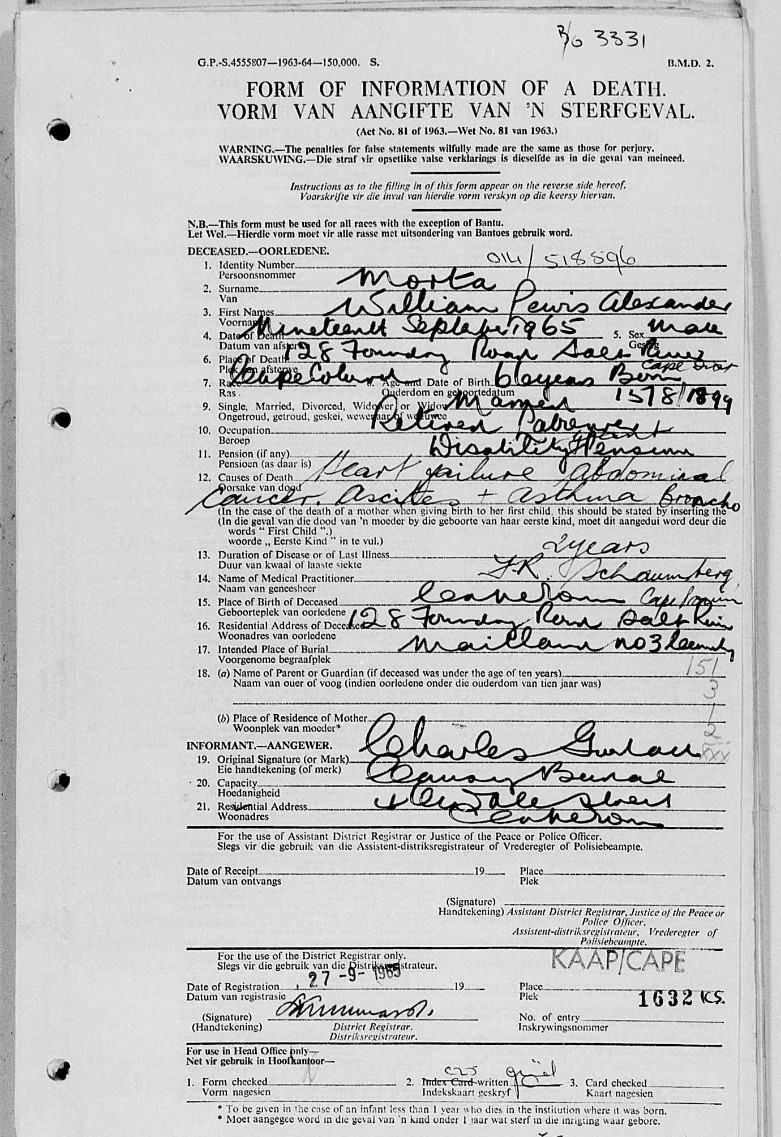 3331
G.P.-S.4555807—1963-64—150,000. S. B.M.D. 2.
FORM OF INFORMATION OF A DEATH.
VORM VAN AANGIFTE VAN 'N STERFGEVAL.
(Act No. 81 of 1963.—Wet No. 81 van 1963.)
WARNING.—The penalties for false statements wilfully made are the same as those for perjury.
WAARSKUWING.—Die straf vir opsetlike valse verklarings is dieselfde as in die geval van meineed.
Instructions as to the filling in of this form appear on the reverse side hereof.
Voorskrifte vir die invul van hierdie vorm verskyn op die keersy hiervan.
N.B.—This form must be used for all races with the exception of Bantu.
Let Wel.—Hierdie vorm moet vir alle rasse met uitsondering van Bantoes gebruik word.
DECEASED.—OORLEDENE.
1. Identity Number 014/518596
Persoonsnommer
2. Surname Morta
Van
3. First Names William Lewis Alexander
Voorname
4. Date of Death Nineteenth September 1965 5. Sex Male
Datum van afsterwe Geslag
6. Place of Death 128 Foundry Road Salt River
Plek van afsterwe Cape Dist
7. Race Cape Colourd 8. Age and Date of Birth 66 years Born
Ras Ouderdom en geboortedatum 1899
9. Single, Married, Divorced, Widower or Widow Married
Ongetroud, getroud, geskei, wewenaar of weduwee
10. Occupation Retired Labourer
Beroep
11. Pension (if any) Disability Grant Pension
Pensioen (as daar is)
12. Causes of Death Heart failure Abdominal
Oorsake van dood Cancer. Ascites + Asthma Broncho
(In the case of the death of a mother when giving birth to her first child, this should be stated by inserting the
(In die geval van die dood van 'n moeder by die geboorte van haar eerste kind, moet dit aangedui word deur die
words " First Child ".)
woorde „ Eerste Kind " in te vul.)
13. Duration of Disease or of Last Illness 2 years
Duur van kwaal of laaste siekte
14. Name of Medical Practitioner Schaumberg
Naam van geneesheer
15. Place of Birth of Deceased
Geboorteplek van oorledene
16. Residential Address of Deceased 128 Foundry Road Salt River
Woonadres van oorledene
17. Intended Place of Burial Maitland no 3
Voorgenome begraafplek
18. (a) Name of Parent or Guardian (if deceased was under the age of ten years) 151
Naam van ouer of voog (indien oorledene onder die ouderdom van tien jaar was) 3
1
(b) Place of Residence of Mother 2
Woonplek van moeder* XXX
INFORMANT.—AANGEWER.
19. Original Signature (or Mark) Charles
Eie handtekening (of merk)
20. Capacity
Hoedanigheid
21. Residential Address
Woonadres
For the use of Assistant District Registrar or Justice of the Peace or Police Officer.
Slegs vir die gebruik van die Assistent-distriksregistrateur of Vrederegter of Polisiebeampte.
Date of Receipt 19 Place
Datum van ontvangs Plek
(Signature)
Handtekening) Assistant District Registrar, Justice of the Peace or
Police Officer.
Assistent-distriksregistrateur, Vrederegter of
Polisiebeampte.
For the use of the District Registrar only. KAAP/CAPE
Slegs vir die gebruik van die Distriksregistrateur.
Date of Registration 27-9-1965 19 Place
Datum van registrasie Plek 1632 KS.
(Signature) No. of entry
(Handtekening) District Registrar. Inskrywingsnommer
Distriksregistrateur.
For use in Head Office only—
Net vir gebruik in Hoofkantoor—
1. Form checked 2. Index Card written 3. Card checked
Vorm nagesien Indekskaart geskryf Kaart nagesien
* To be given in the case of an infant less than 1 year who dies in the institution where it was born.
* Moet aangegee word in die geval van 'n kind onder 1 jaar wat sterf in die inrigting waar gebore.